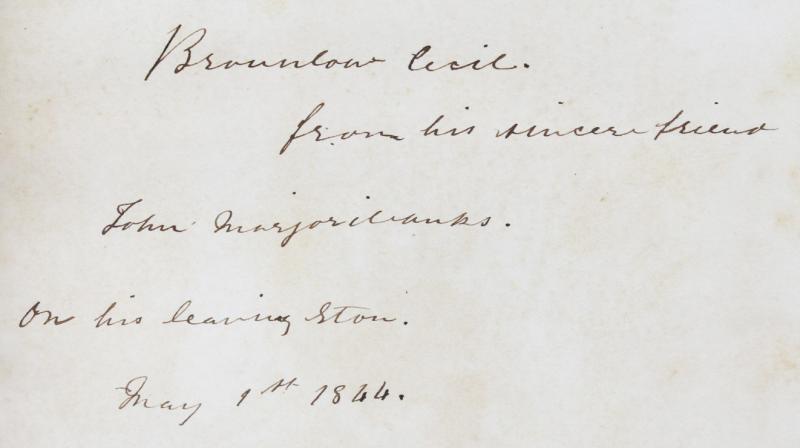 Brownlow Cecil.
from his sincere friend
John Marjoribanks.
On his leaving Eton.
May 1st 1844.